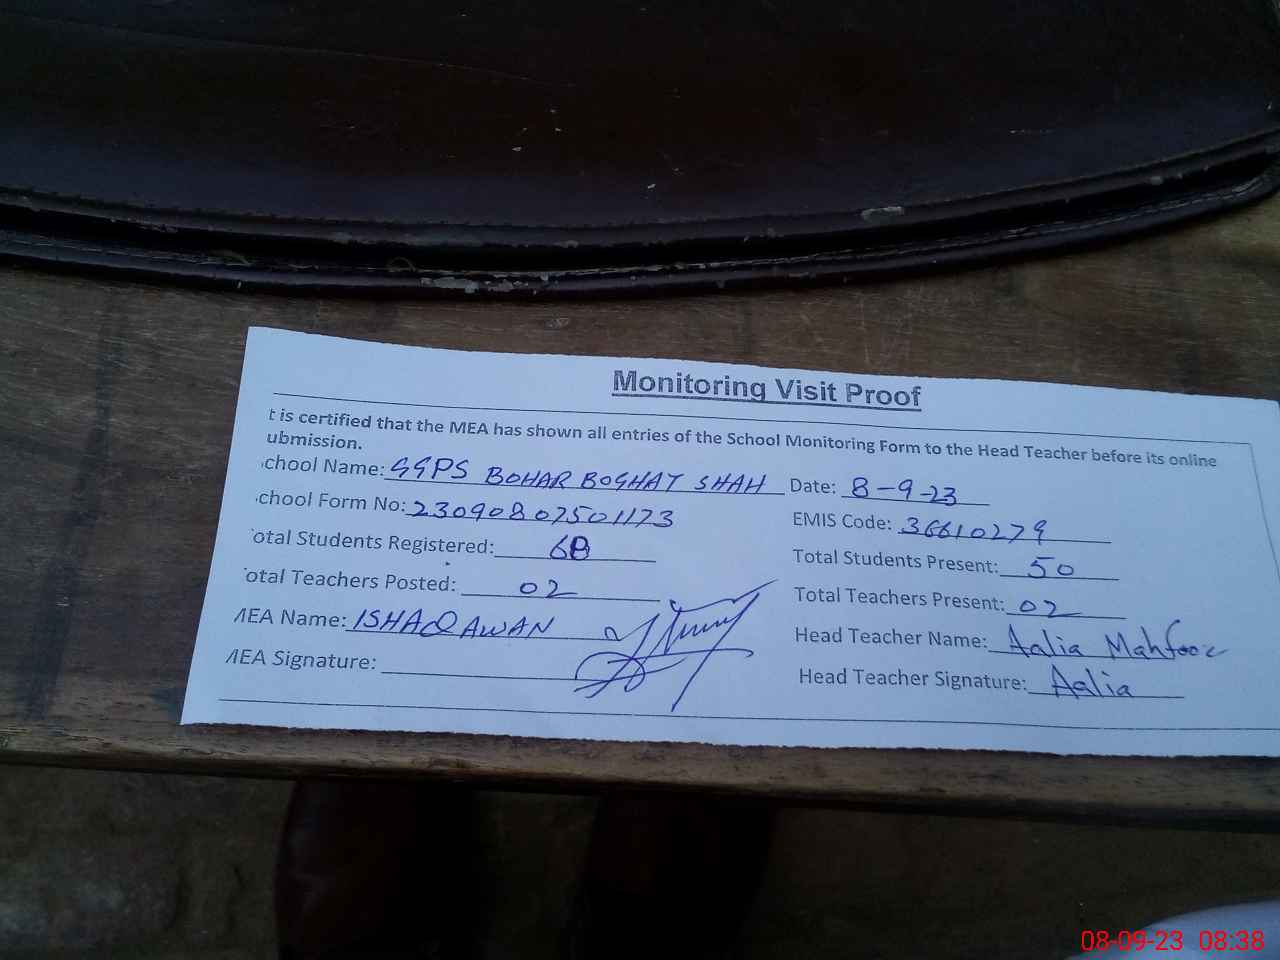 Monitoring Visit Proof
t is certified that the MEA has shown all entries of the School Monitoring Form to the Head Teacher before its online
ubmission.
chool Name: GGPS BOHAR BOGHAT SHAH Date: 8-9-23
chool Form No: 23090807501173 EMIS Code: 36610279
otal Students Registered: 60 Total Students Present: 50
otal Teachers Posted: 02 Total Teachers Present: 02
MEA Name: ISHAQ AWAN Head Teacher Name: Aalia Mahfooz
MEA Signature: Head Teacher Signature: Aalia
08-09-23 08:38